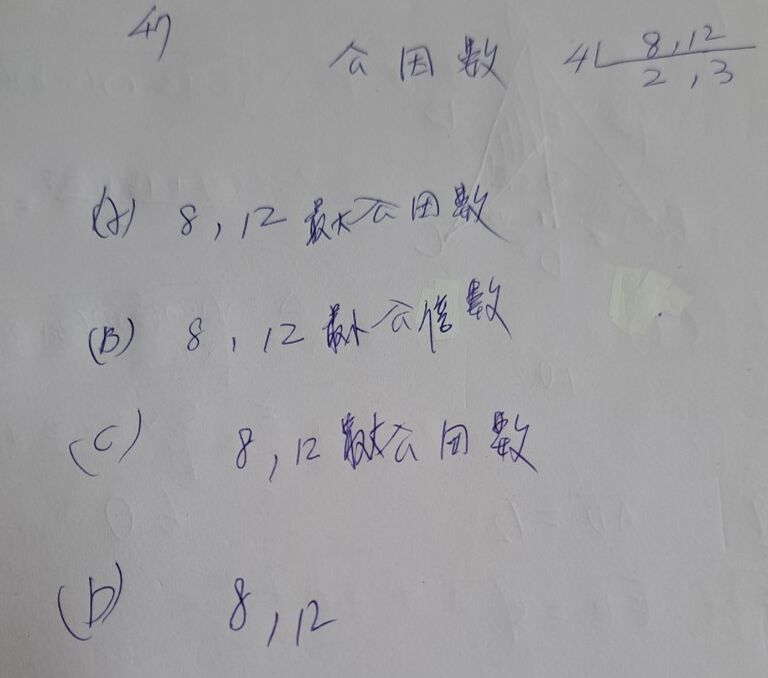 47
公因数 4 8,12
2,3
(A) 8,12 最大公因数
(B) 8,12 最小公倍数
(C) 8,12 最大公因数
(D) 8,12